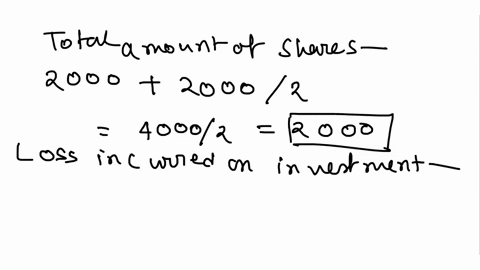 Total amount of shares—
2000 + 2000/2
= 4000/2 = 2000
Loss incurred on investment—